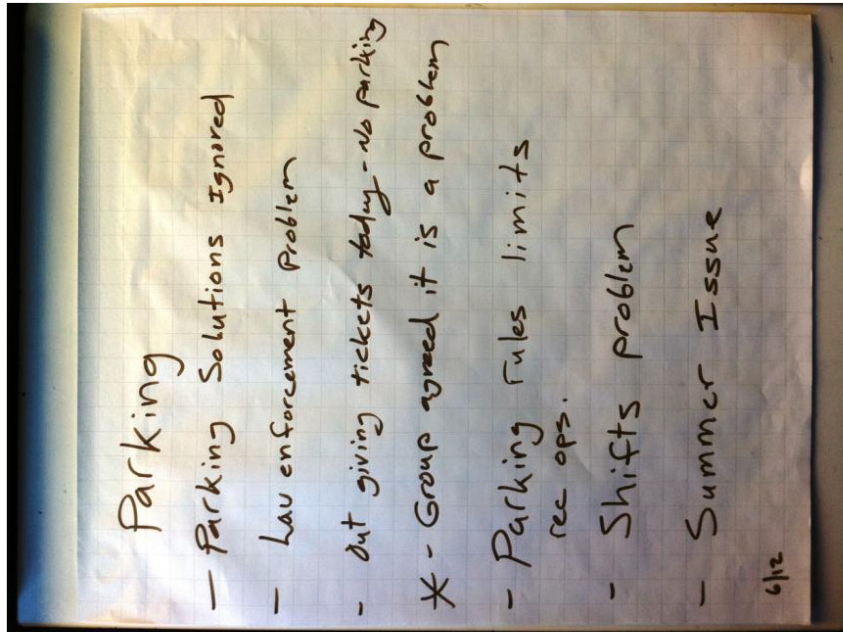 Parking
- Parking Solutions Ignored
- Law enforcement Problem
- Out giving tickets today - No parking
* - Group agreed it is a problem
- Parking rules limits
rec ops.
- Shifts problem
- Summer Issue
6/12